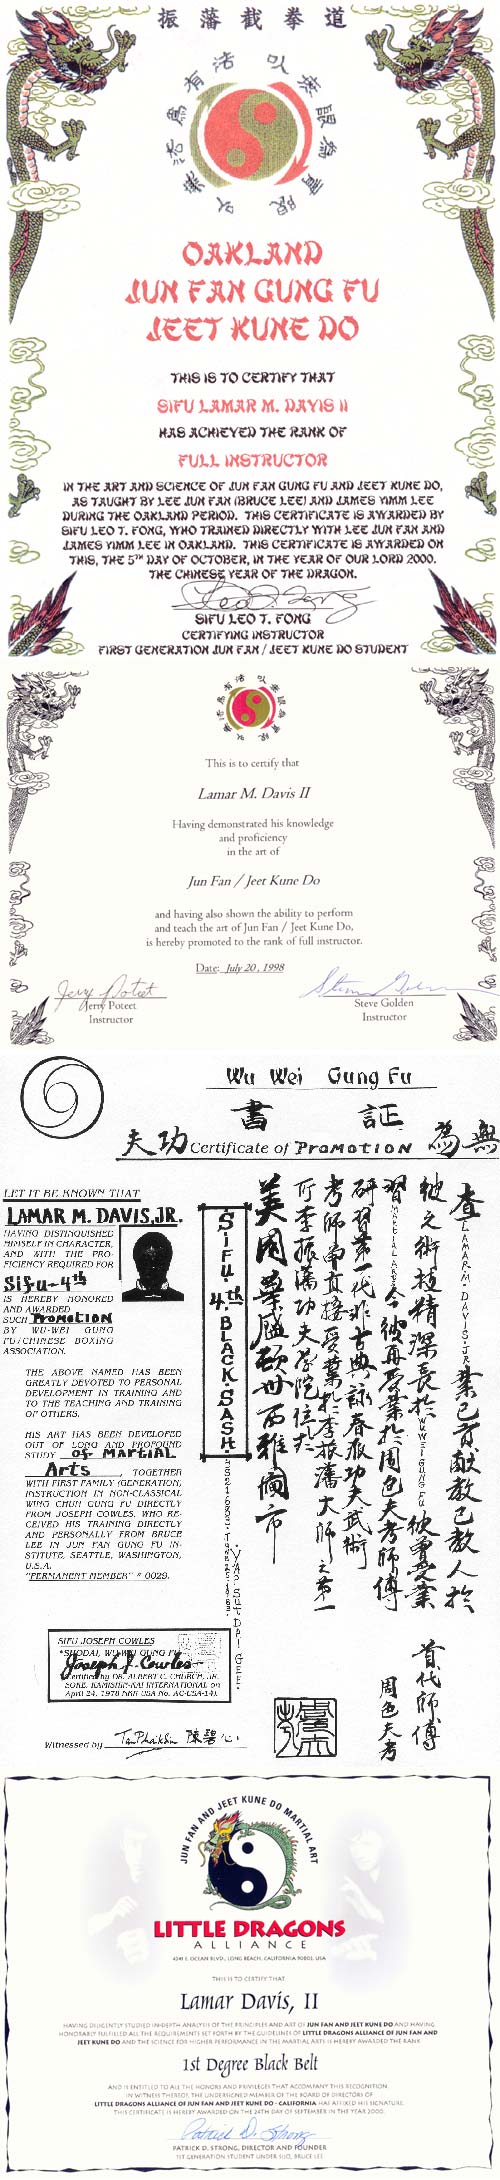 振藩截拳道
以無法為有法
以無限為有限
OAKLAND
JUN FAN GUNG FU
JEET KUNE DO
THIS IS TO CERTIFY THAT
SIFU LAMAR M. DAVIS II
HAS ACHIEVED THE RANK OF
FULL INSTRUCTOR
IN THE ART AND SCIENCE OF JUN FAN GUNG FU AND JEET KUNE DO,
AS TAUGHT BY LEE JUN FAN (BRUCE LEE) AND JAMES YIMM LEE
DURING THE OAKLAND PERIOD. THIS CERTIFICATE IS AWARDED BY
SIFU LEO T. FONG, WHO TRAINED DIRECTLY WITH LEE JUN FAN AND
JAMES YIMM LEE IN OAKLAND. THIS CERTIFICATE IS AWARDED ON
THIS, THE 5TH DAY OF OCTOBER, IN THE YEAR OF OUR LORD 2000.
THE CHINESE YEAR OF THE DRAGON.
Leo T. Fong
SIFU LEO T. FONG
CERTIFYING INSTRUCTOR
FIRST GENERATION JUN FAN / JEET KUNE DO STUDENT
以無法為有法
以無限為有限
This is to certify that
Lamar M. Davis II
Having demonstrated his knowledge
and proficiency
in the art of
Jun Fan / Jeet Kune Do
and having also shown the ability to perform
and teach the art of Jun Fan / Jeet Kune Do,
is hereby promoted to the rank of full instructor.
Date: July 20, 1998
Jerry Poteet
Jerry Poteet
Instructor
Steve Golden
Steve Golden
Instructor
Wu Wei Gung Fu
書 証
夫功 Certificate of PROMOTION 為無
LET IT BE KNOWN THAT
LAMAR M. DAVIS, JR.
HAVING DISTINGUISHED
HIMSELF IN CHARACTER,
AND WITH THE PRO-
FICIENCY REQUIRED FOR
Sifu-4th
IS HEREBY HONORED
AND AWARDED
SUCH PROMOTION
BY WU-WEI GUNG
FU/CHINESE BOXING
ASSOCIATION.
THE ABOVE NAMED HAS BEEN
GREATLY DEVOTED TO PERSONAL
DEVELOPMENT IN TRAINING AND
TO THE TEACHING AND TRAINING
OF OTHERS.
HIS ART HAS BEEN DEVELOPED
OUT OF LONG AND PROFOUND
STUDY of MARTIAL
Arts, TOGETHER
WITH FIRST FAMILY (GENERATION,
INSTRUCTION IN NON-CLASSICAL
WING CHUN GUNG FU DIRECTLY
FROM JOSEPH COWLES, WHO RE-
CEIVED HIS TRAINING DIRECTLY
AND PERSONALLY FROM BRUCE
LEE IN JUN FAN GUNG FU IN-
STITUTE, SEATTLE, WASHINGTON,
U.S.A.
"PERMANENT MEMBER" # 0029.
SIFU · 4th BLACK SASH
查 LAMAR M. DAVIS JR. 業已貢献教已教人於
彼之術技精深長於 WU WEI GUNG FU 彼曾受業
習 MARTIAL ARTS 今彼再受業於周色夫考師傅
研習第一代非古典詠春派功夫武術
考師傅直接受業於李振藩大師之第一
所李振藩功夫學院位於
美國華盛頓州西雅圖市
首代師傅
周色夫考
SIFU JOSEPH COWLES
SHODAI, WU-WEI GUNG FU
Joseph J. Cowles
Certified by DR. ALBERT C. CHURCH, JR.
SOKE, KAMISHIN-KAI INTERNATIONAL on
April 24, 1978 NRR USA No. AC-USA-141.
Witnessed by
JUN FAN AND JEET KUNE DO MARTIAL ART
LITTLE DRAGONS
ALLIANCE
4041 E. OCEAN BLVD., LONG BEACH, CALIFORNIA 90803, USA
THIS IS TO CERTIFY THAT
Lamar Davis, II
HAVING DILIGENTLY STUDIED IN-DEPTH ANALYSIS OF THE PRINCIPLES AND ART OF JUN FAN AND JEET KUNE DO AND HAVING
HONORABLY FULFILLED ALL THE REQUIREMENTS SET FORTH BY THE GUIDELINES OF LITTLE DRAGONS ALLIANCE OF JUN FAN AND
JEET KUNE DO AND THE SCIENCE FOR HIGHER PERFORMANCE IN THE MARTIAL ARTS IS HEREBY AWARDED THE RANK
1st Degree Black Belt
AND IS ENTITLED TO ALL THE HONORS AND PRIVILEGES THAT ACCOMPANY THIS RECOGNITION.
IN WITNESS THEREOF, THE UNDERSIGNED MEMBER OF THE BOARD OF DIRECTORS OF
LITTLE DRAGONS ALLIANCE OF JUN FAN AND JEET KUNE DO - CALIFORNIA HAS AFFIXED HIS SIGNATURE.
THIS CERTIFICATE IS HEREBY AWARDED ON THE 24TH DAY OF SEPTEMBER IN THE YEAR 2000.
Patrick D. Strong
PATRICK D. STRONG, DIRECTOR AND FOUNDER
1ST GENERATION STUDENT UNDER SIJO, BRUCE LEE